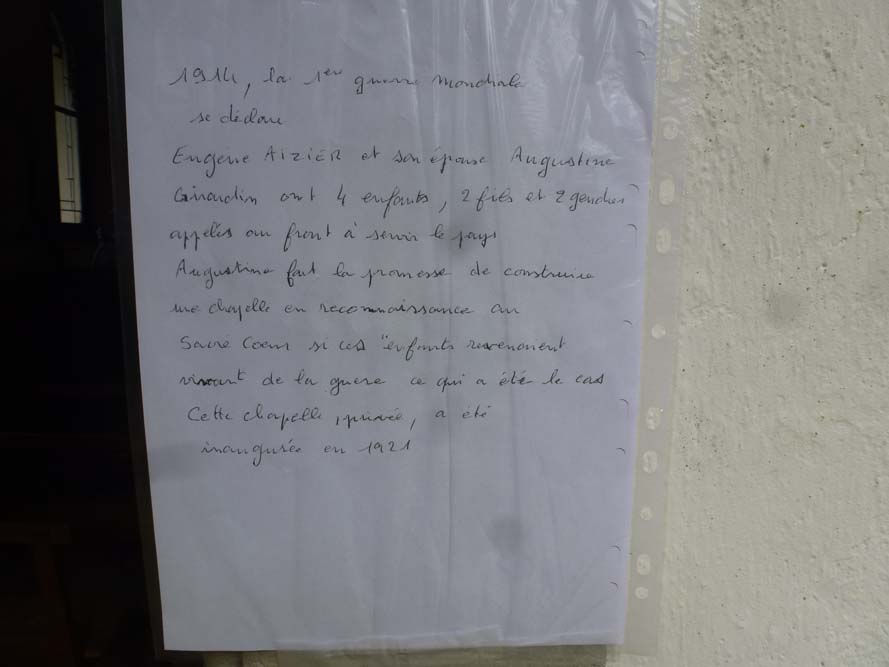 1914, la 1ere guerre mondiale
se déclare
Eugène AIZIER et son épouse Augustine
Girardin ont 4 enfants, 2 fils et 2 gendres
appelés au front à servir le pays
Augustine fait la promesse de construire
une chapelle en reconnaissance au
Sacré Coeur si ces "enfants revenaient
vivant de la guerre ce qui a été le cas
Cette chapelle, privée, a été
inaugurée en 1921